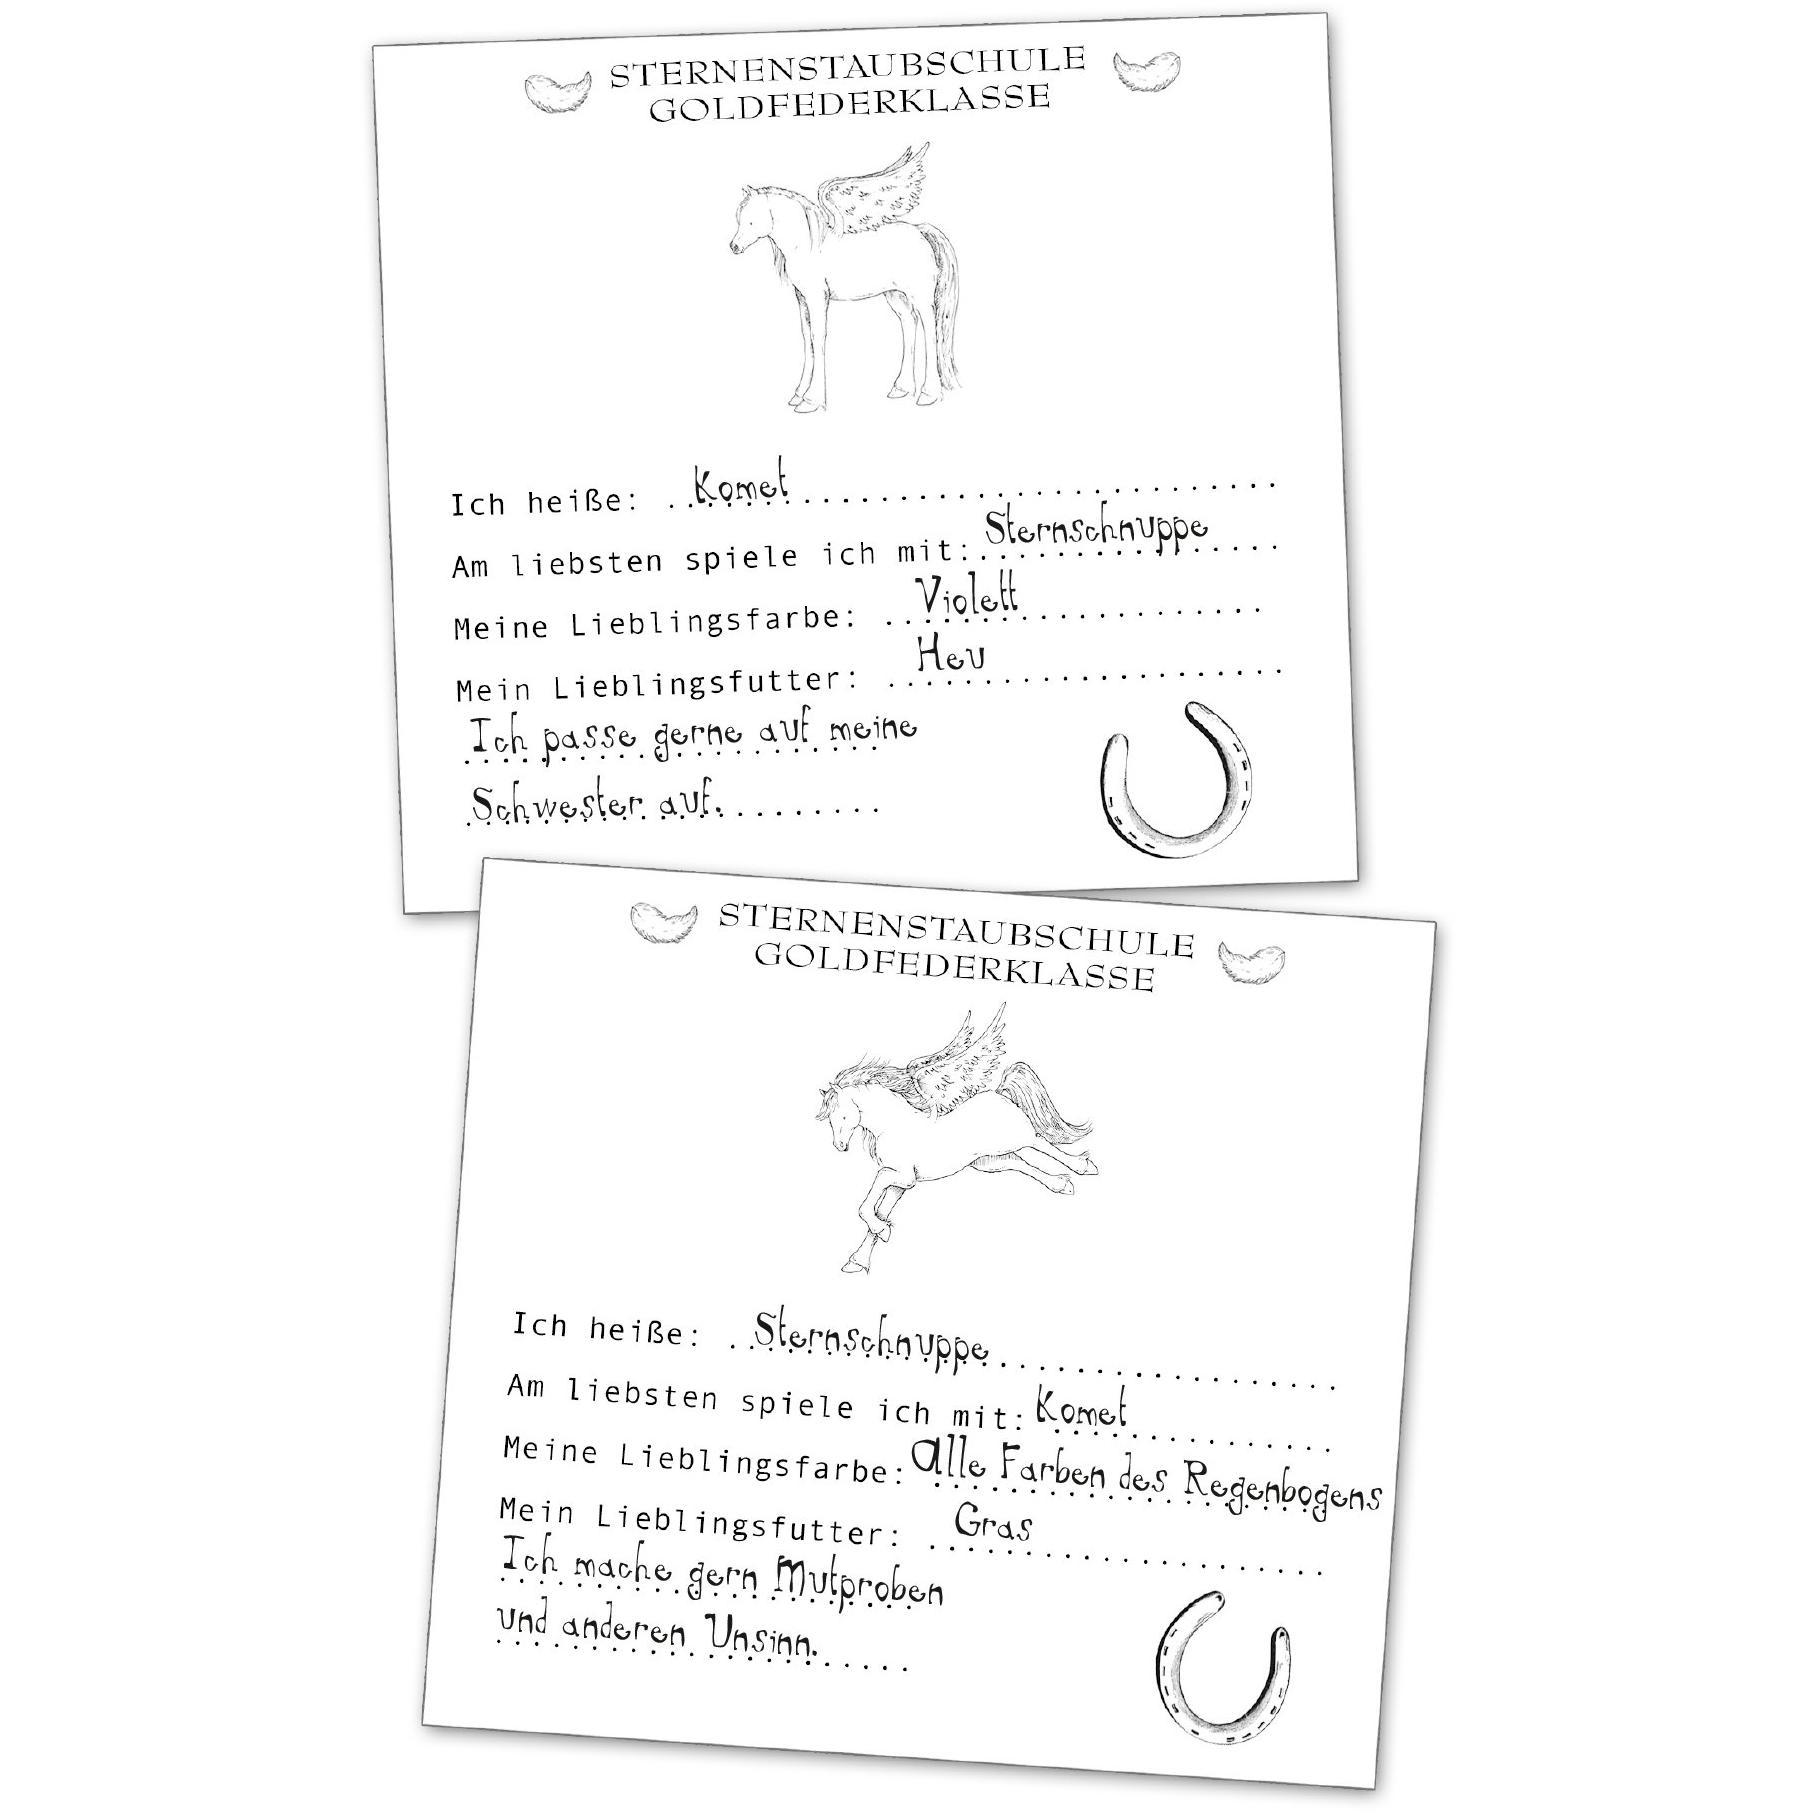 STERNENSTAUBSCHULE
GOLDFEDERKLASSE
Ich heiße: Komet
Am liebsten spiele ich mit: Sternschnuppe
Meine Lieblingsfarbe: Violett
Mein Lieblingsfutter: Heu
Ich passe gerne auf meine
Schwester auf.
STERNENSTAUBSCHULE
GOLDFEDERKLASSE
Ich heiße: Sternschnuppe
Am liebsten spiele ich mit: Komet
Meine Lieblingsfarbe: alle Farben des Regenbogens
Mein Lieblingsfutter: Gras
Ich mache gern Mutproben
und anderen Unsinn.